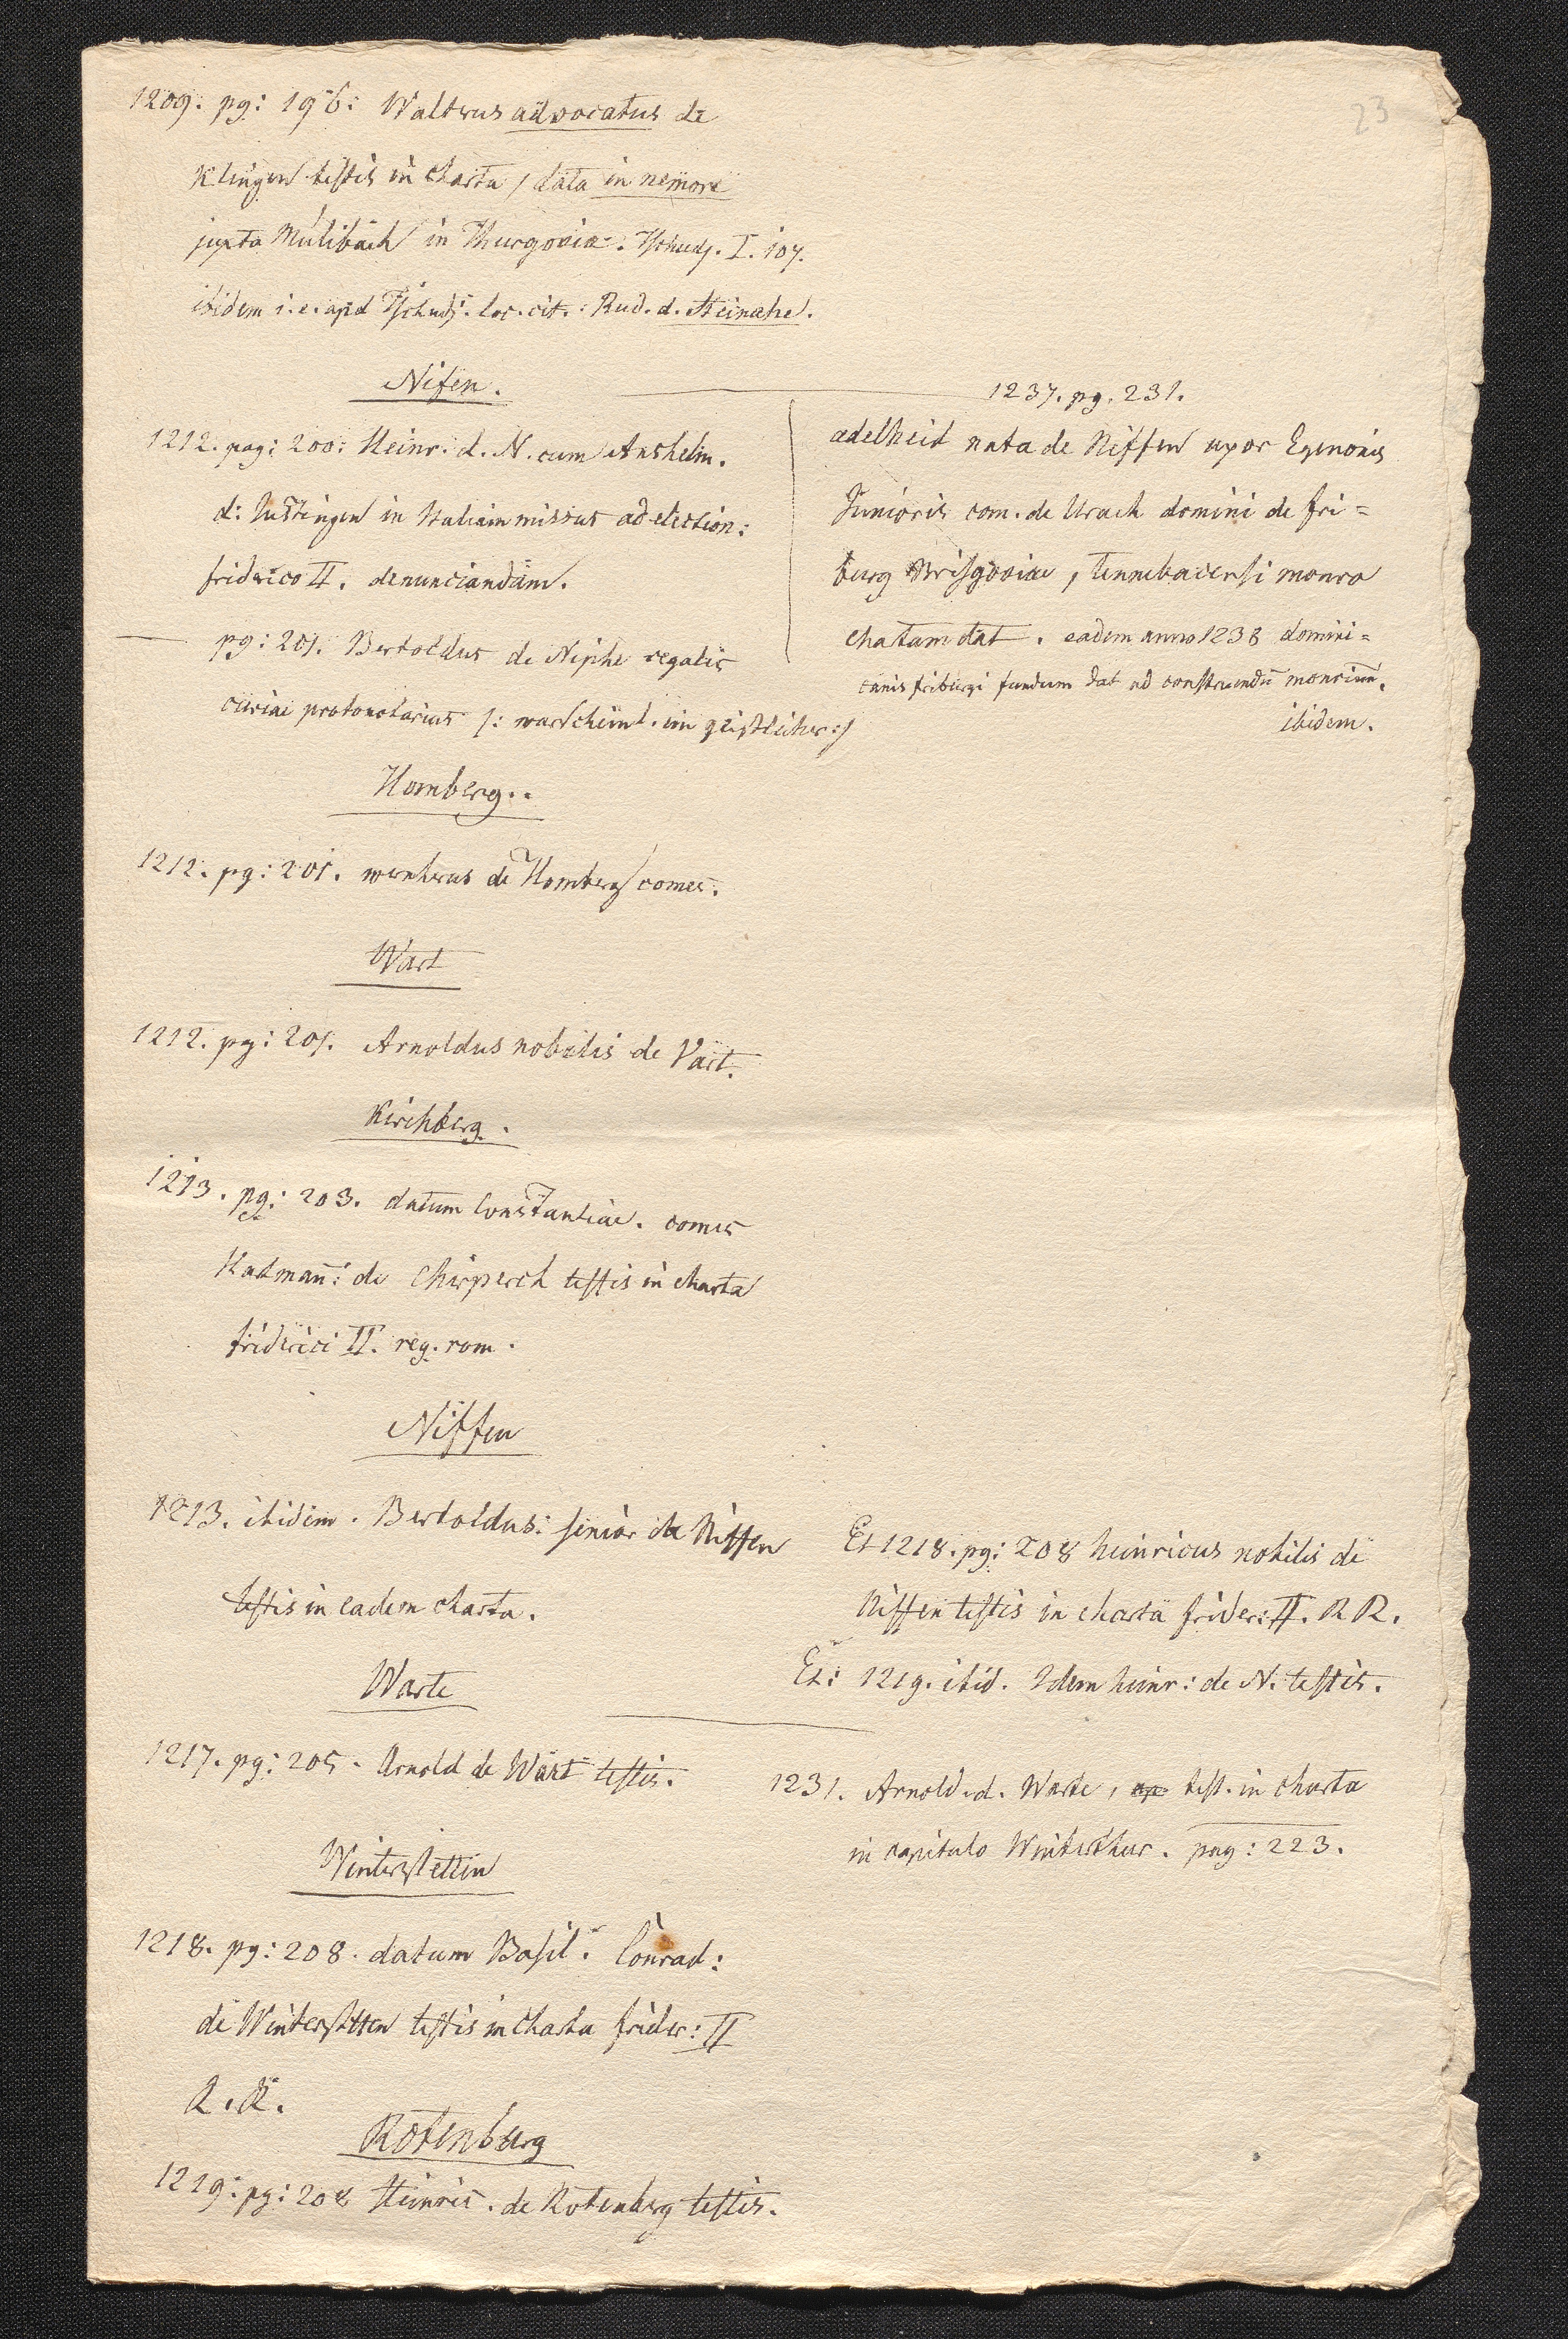 23
1209. pg: 196: Waltrus advocatus de
Klingen testis in charta, data in nemore
juxta Mülibach in Thurgovia. Tschudj. I. 107.
ibidem i. e. apd Tschudj. loc. cit.: Rud. d. Steinahe.
Nifen.
1212. pag: 200: Heinr. d. N. cum Anshelm.
d: Justingen in Italiam missus ad election:
friderico II. denunciandam.
pg: 201. Bertoldus de Niphe regalis
curiae protonotarius /: warscheinl. ein geistlicher :/
1237. pg. 231.
adelheid nata de Niffen uxor Egenonis
Junioris com. de Urach domini de fri=
burg Brisgoviae, tennebacensi monro
chatam dat. eadem anno 1238 domini=
canis friburgi fundum dat ad construendū monrium.
ibidem.
Homberg..
1212. pg: 201. wernherus de Homberg comes.
Wart
1212. pg: 201. Arnoldus nobilis de Vart.
Kirchberg.
1213. pg: 203. datum Constantiae. comes
Hadmañ: de Chirperch testis in charta
friderici II. reg. rom.
Niffen
1213. ibidem. Bertoldus: senior de Niffen
testis in eadem charta.
Et 1218. pg: 208 heinricus nobilis de
Niffen testis in charta frider: II. R R.
Et: 1219. ibid. Idem heinr: de N. testis.
Warte
1217. pg: 205. Arnold de Wart testis.
1231. Arnold. d. Warte, test. in charta
in capitulo Winterthur. pag: 223.
Winterstettin
1218. pg: 208. datum Basil. Conrad:
de Winterstetten testis in charta frider: II
R. R.
Rotenburg
1219: pg: 208 Heinric. de Rotenberg testis.